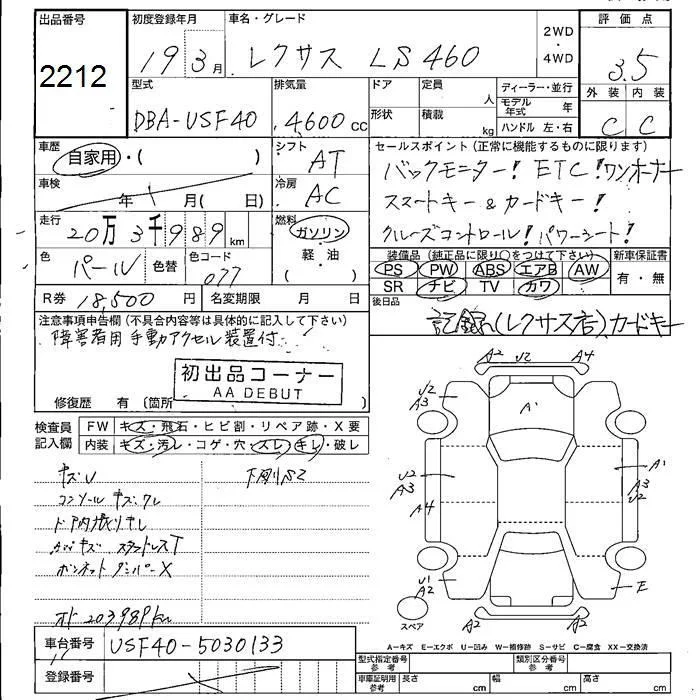 出品番号
2212
初度登録年月 車名・グレード
19 3月 レクサス LS460
2WD・4WD
評価点
3.5
外装 内装
C C
型式 排気量 ドア 定員 人
DBA-USF40 4600cc
形状 積載 kg
ディーラー・並行
モデル年式 年
ハンドル 左・右
車歴 シフト
自家用・( ) AT
車検 冷房
年 月( 日) AC
セールスポイント(正常に機能するものに限ります)
バックモニター! ETC! ワンオーナー
スマートキー&カードキー!
クルーズコントロール! パワーシート!
走行 燃料
20万3千989km ガソリン
軽・油
色 色替 色コード
パール 077
装備品(純正品に限り○をつけて下さい) 新車保証書
PS PW ABS エアB AW
SR ナビ TV カワ
有・無
R券 18,500円 名変期限 月 日
後日品
記録ノ(レクサス店)カードキー
注意事項申告欄(不具合内容等は具体的に記入して下さい)
障害者用手動アクセル装置付
初出品コーナー
AA DEBUT
修復歴 有(箇所
検査員記入欄
FW キズ・飛石・ヒビ割・リペア跡・X要
内装 キズ・汚レ・コゲ・穴・スレ・キレ・破レ
キズU
コンソールキズ、クレ
ドア内張りキレ
スタッドレスT
ボンネットダンパーX
203989km
A2 U2 A4
U2 A3
A1
U2 A3
A4
A1
A3 U2
U1 A2
E
A2 U2 A2
スペア
A-キズ E-エクボ U-凹み W-補修跡 S-サビ C-腐食 XX-交換済
車台番号 USF40-5030133
登録番号
型式指定番号参考 類別区分番号参考
車庫証明用参考 長さ cm 幅 cm 高さ cm